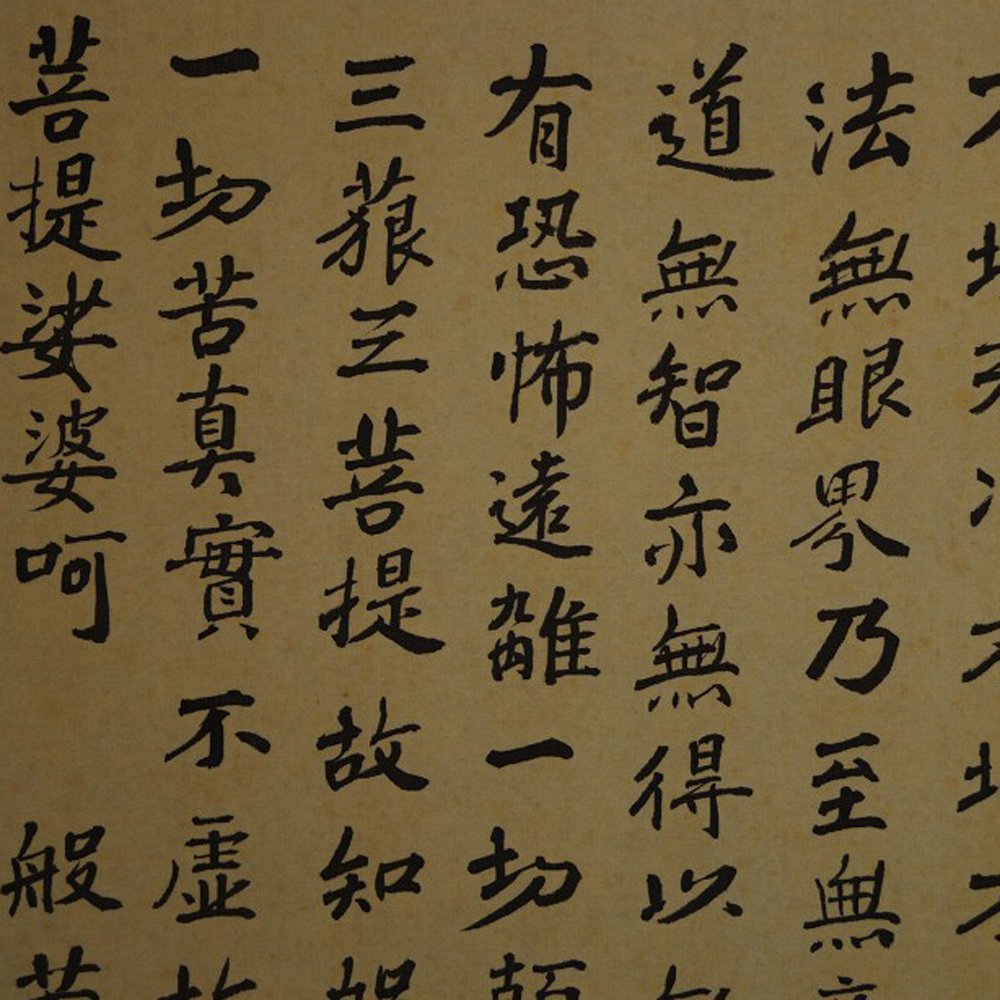 法無眼界乃至無
道無智亦無得以無
有恐怖遠離一切顛
三藐三菩提故知般
一切苦真實不虛故
菩提娑婆呵 般若